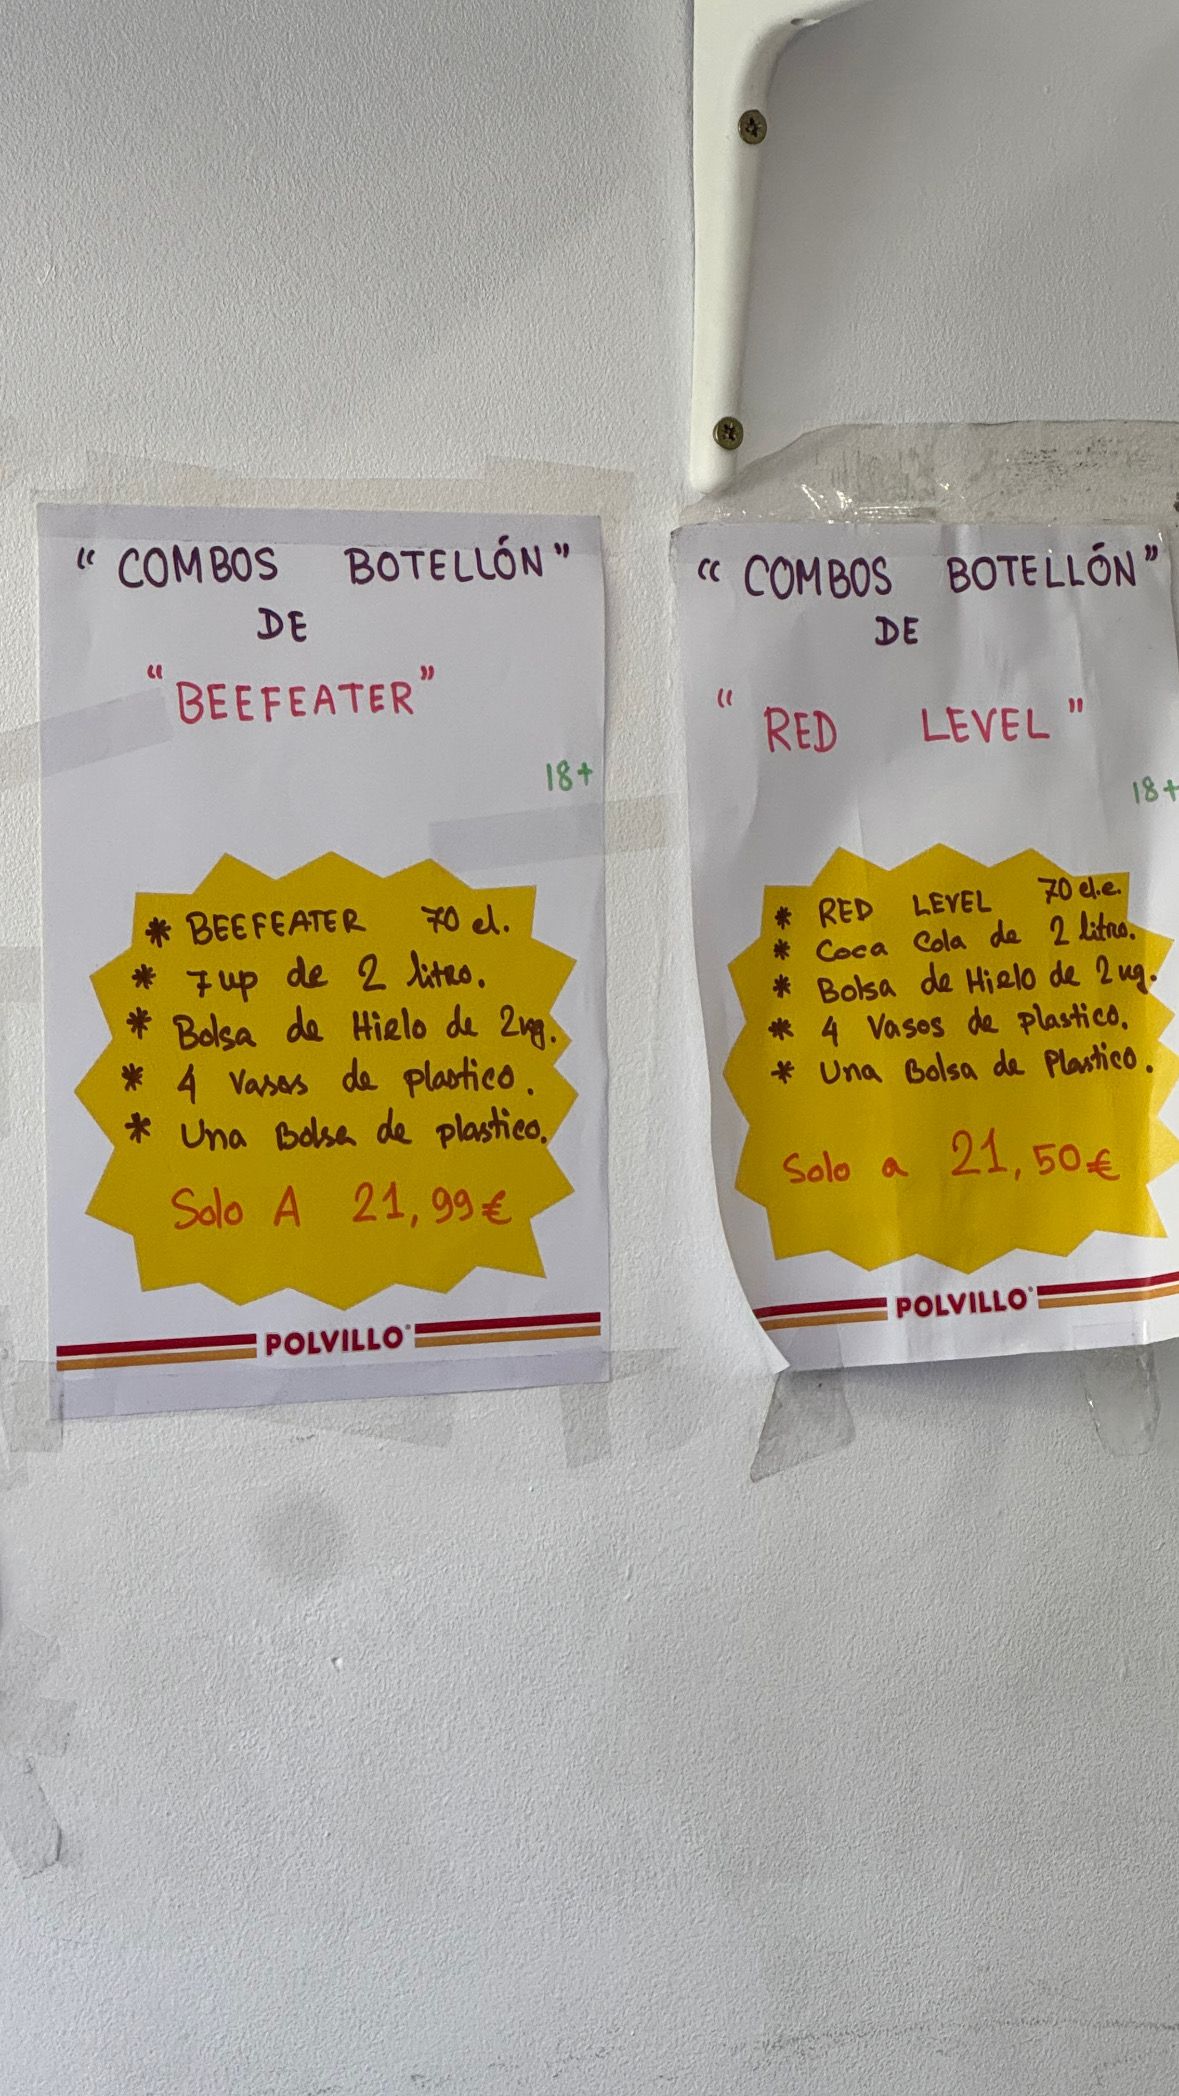 “ COMBOS BOTELLÓN ”
DE
“ BEEFEATER ”
18+
* BEEFEATER 70 cl.
* 7up de 2 litro.
* Bolsa de Hielo de 2kg.
* 4 Vasos de plastico.
* Una Bolsa de plastico.
Solo A 21,99€
POLVILLO
“ COMBOS BOTELLÓN ”
DE
“ RED LEVEL ”
18+
* RED LEVEL 70 cl.e.
* Coca Cola de 2 litro.
* Bolsa de Hielo de 2kg.
* 4 Vasos de plastico.
* Una Bolsa de Plastico.
Solo a 21,50€
POLVILLO